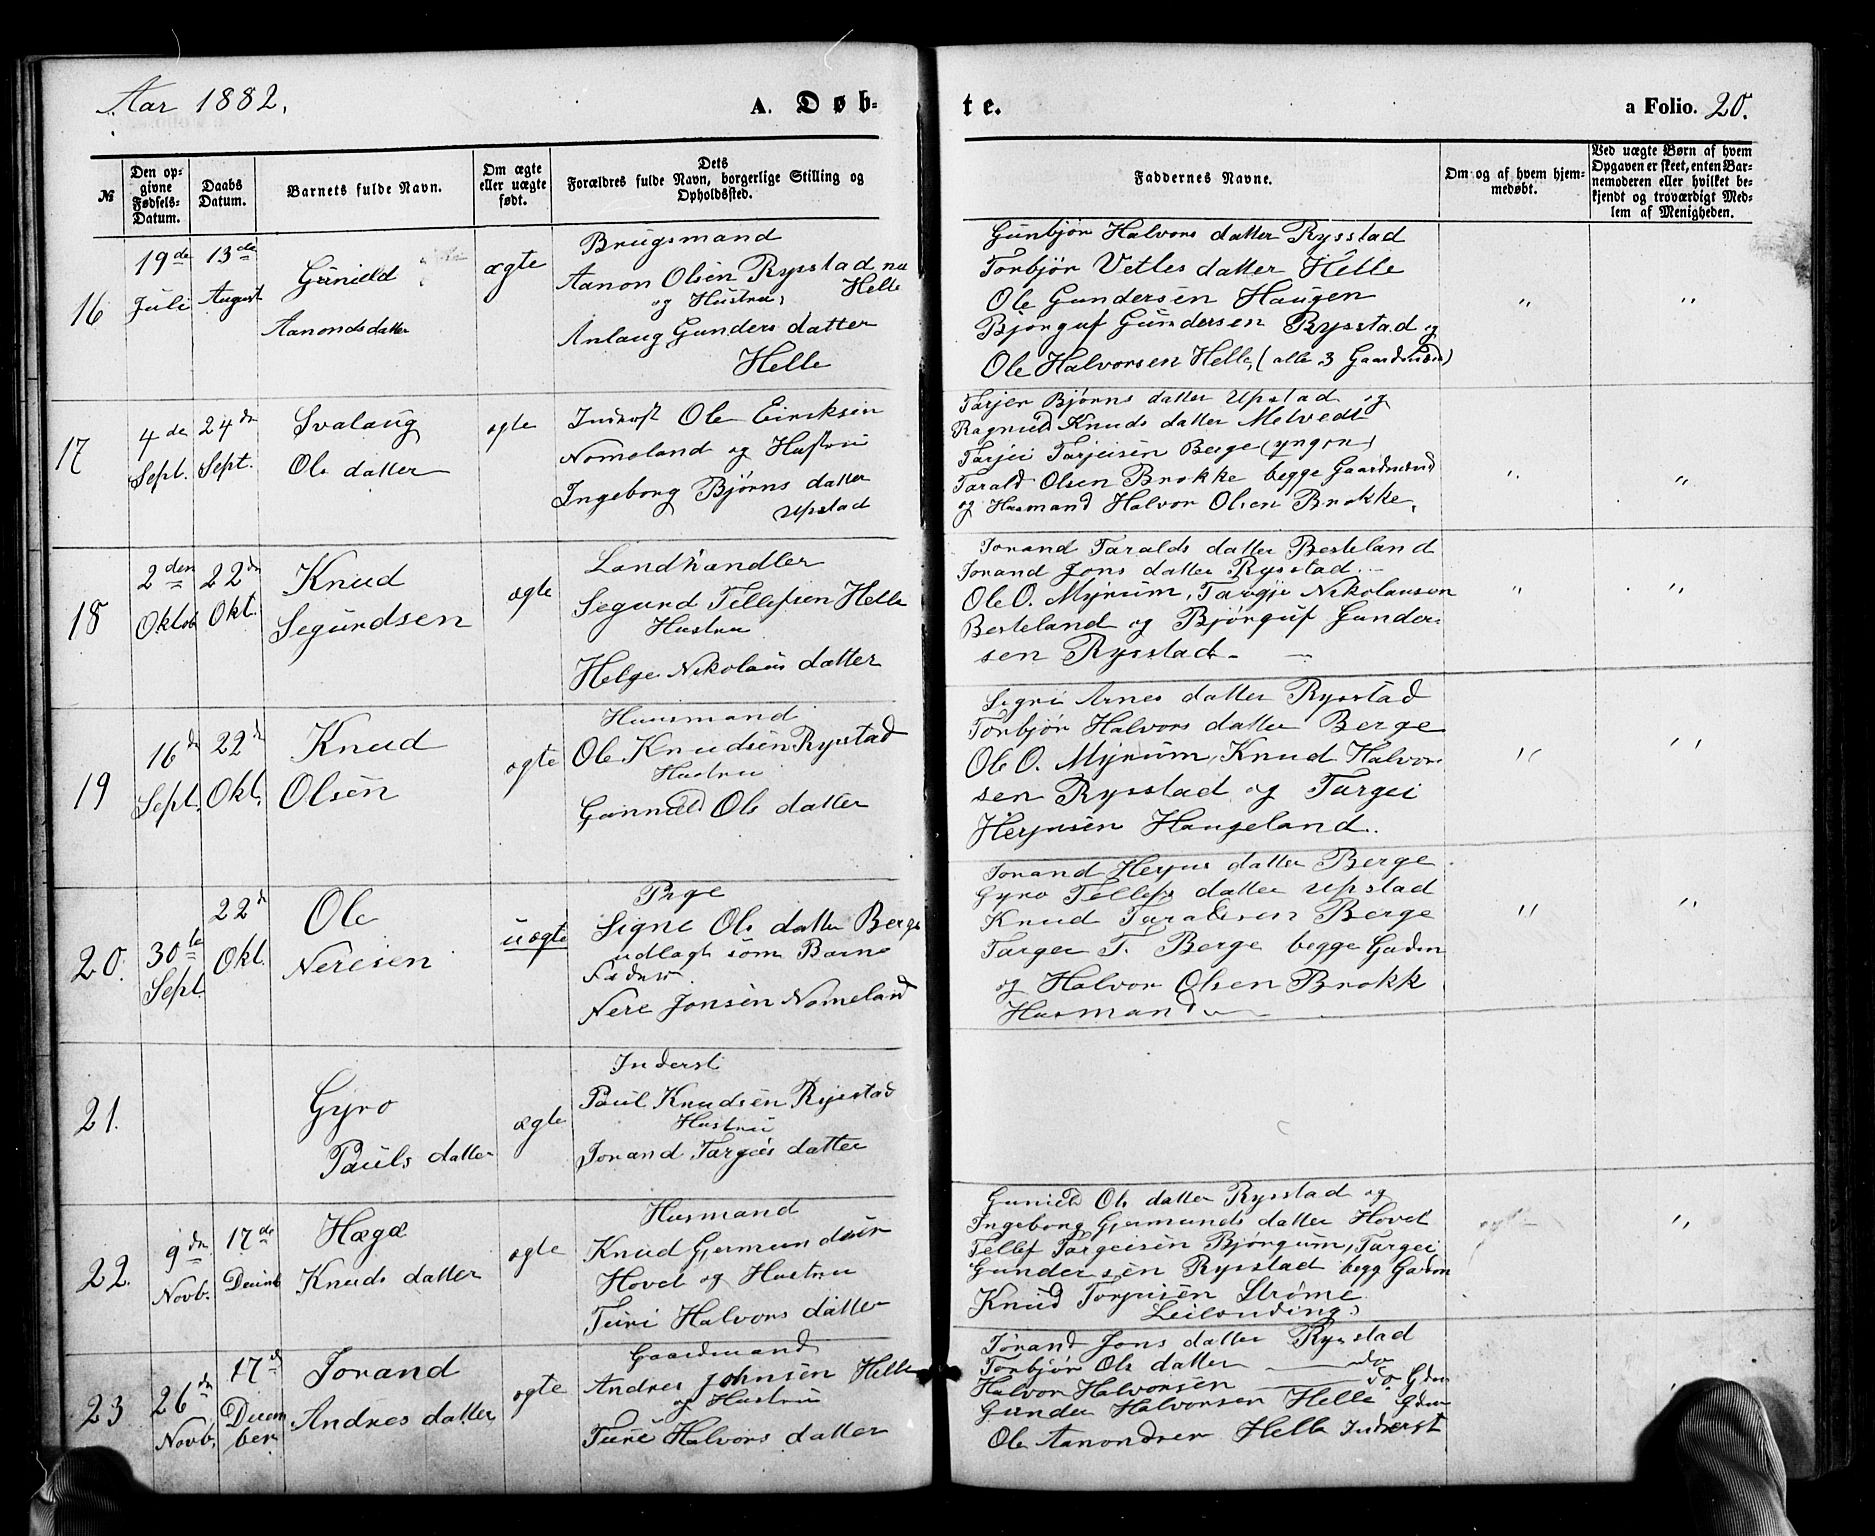 Aar 1882.
A. Døb-
te.
a Folio. 20.
№
Den op-
givne
Fødsels-
Datum.
Daabs
Datum.
Barnets fulde Navn.
Om ægte
eller uægte
født.
Dets
Forældres fulde Navn, borgerlige Stilling og
Opholdssted.
Faddernes Navne.
Om og af hvem hjem-
medøbt.
Ved uægte Børn af hvem
Opgaven er skeet, enten Bar-
nemoderen eller hvilket be-
kjendt og troværdigt Med-
lem af Menigheden.
16
19de
Juli
13de
August
Gunild
Aanondsdatter
ægte
Brugsmand
Aanon Olsen Rysstad nu
og Hustru, Helle
Anlaug Gunders datter
Helle
Gunbjør Halvors datter Rysstad
Torbjør Vetles datter Helle
Ole Gundersen Haugen
Bjorguf Gundersen Rysstad og
Ole Halvorsen Helle, (alle 3 Gaardmænd)
"
"
17
4de
Sept.
24de
Sept.
Svalaug
Ols datter
ægte
Inderst Ole Eiriksen
Nomeland og Hustru
Ingeborg Bjørns datter
Upstad
Tarjer Bjørns datter Upstad og
Ragnild Knuds datter Melvedt
Tarjei Tarjeisen Berge (yngre)
Tarald Olsen Brokke begge Gaardmænd
og Husmand Halvor Olsen Brokke.
"
"
18
2den
Oktob
22de
Okt.
Knud
Segurdsen
ægte
Landhandler
Segurd Tellefsen Helle
Hustru
Helge Nikolaus datter
Jorand Taralds datter Besteland
Jorand Jons datter Rysstad
Ole O. Myrum, Targje Nikolausen
Besteland og Bjørguf Gunder-
sen Rysstad -
"
"
19
16d
Sept.
22d
Okt.
Knud
Olsen
ægte
Huusmand
Ole Knudsen Rysstad
Hustru
Gunnild Ols datter
Sigri Arnes datter Rysstad
Torbjør Halvors datter Berge
Ole O. Myrum, Knud Halvor-
sen Rysstad og Targei
Herjusen Haugeland.
"
"
20.
30te
Sept.
22d
Okt.
Ole
Neresen
uægte
Pige
Signe Ols datter Berge
udlagt som Barne
Fader
Nere Jonsen Nomeland
Jorand Herjus datter Berge
Gyro Tellefs datter Upstad
Knud Taraldsen Berge
Targei T. Berge begge Gadm
og Halvor Olsen Brokk
Husmand
"
"
21.
Gyro
Pauls datter
ægte
Inderst
Paul Knudsen Rysstad
Hustru
Jorand Targeis datter
22.
9de
Novb.
17de
Decmb
Hæge
Knuds datter
ægte
Husmand
Knud Gjermundsen
Hovet og Hustru
Turi Halvors datter
Gunild Ols datter Rysstad og
Ingeborg Gjermunds datter Hovet
Tellef Targeisen Bjørgum, Targei
Gundersen Rysstad begg Gadm
Knud Torjusen Strøme
Leilending
"
23
26de
Novb.
17d
Decem
ber
Jorand
Andres datter
ægte
Gaardmand
Andres Johnsen Helle
og Hustru
Turi Halvors datter
Jorand Jons datter Rysstad
Torbjør Ols datter — do
Halvor Halvorsen — do Gdm
Gunder Halvorsen Helle Gdm
Ole Aanondsen Helle Inderst